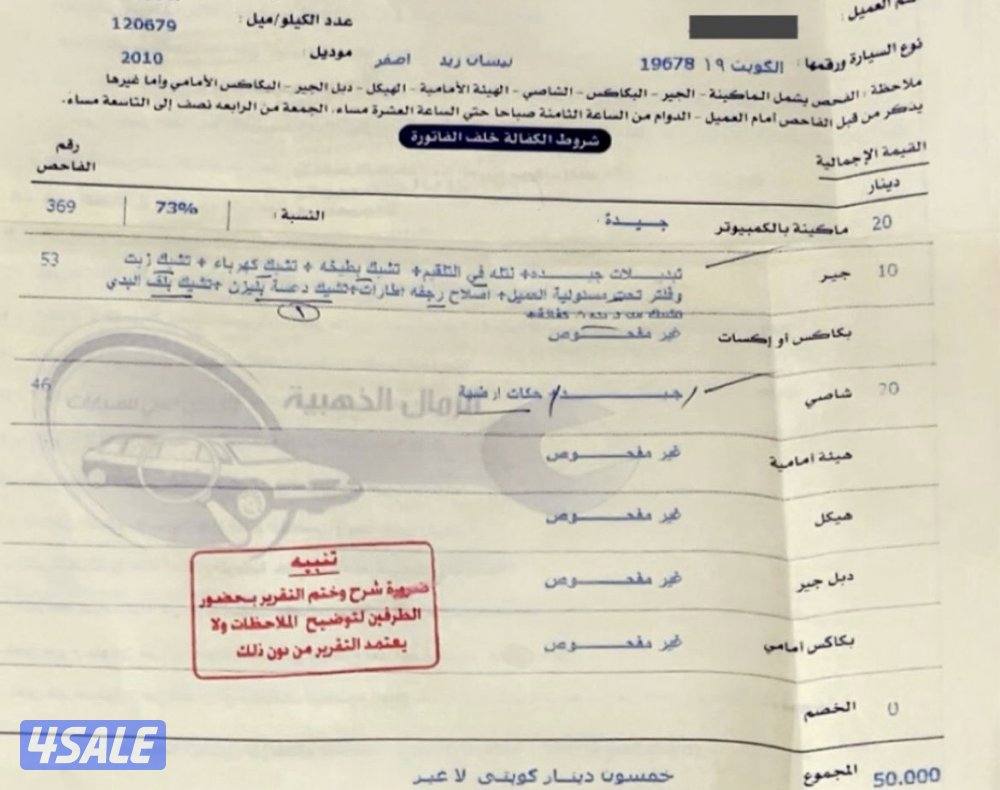 اسم العميل :
عدد الكيلو/ميل : 120679
نوع السيارة ورقمها : الكويت ١٩ 19678 نيسان زيد اصفر موديل : 2010
ملاحظة : الفحص يشمل الماكينة - الجير - البكاكس - الشاصي - الهيئة الأمامية - الهيكل - دبل الجير - البكاكس الأمامي وأما غيرها
يذكر من قبل الفاحص أمام العميل - الدوام من الساعة الثامنة صباحا حتي الساعة العشرة مساء، الجمعة من الرابعه نصف إلى التاسعة مساء.
شروط الكفالة خلف الفاتورة
القيمة الإجمالية
دينار
رقم الفاحص
20 ماكينة بالكمبيوتر جـيـدة . النسبة : 73% 369
10 جير تبديـلات جيـــده+ نتله في التلقيم+ تشيك بطيخه + تشيك كهرباء + تشيك زيت 53
وفلتر تحت مسئولية العميل + اصلاح رجفه اطارات+تشيك دعسة بليزن +تشيك بلف البدي
١
بكاكس أو إكسات غير مفحـــــوص
20 شاصي جيـــــد + حكات ارضية 46
الرمال الذهبية
هيئة امامية غير مفحـــــوص
هيكل غير مفحـــــوص
دبل جير غير مفحـــــوص
بكاكس امامي غير مفحـــــوص
تنبيه
ضرورة شرح وختم التقرير بحضور
الطرفين لتوضيح الملاحظات ولا
يعتمد التقرير من دون ذلك
0 الخصم
50.000 المجموع خمسون دينار كويتي لا غير
4SALE